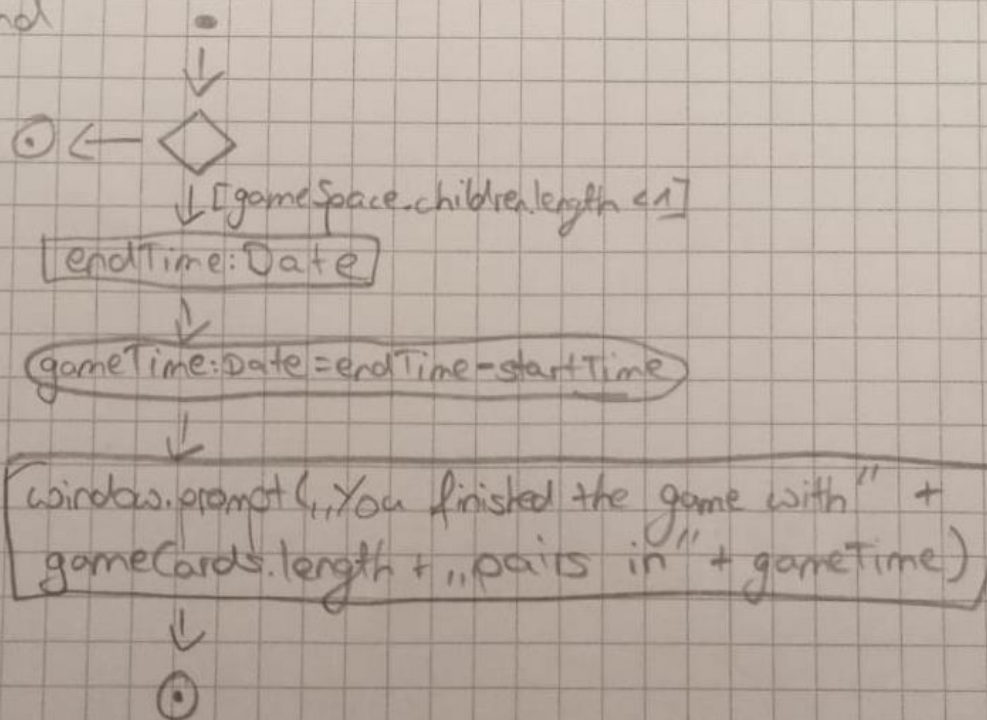 nd
[gameSpace.children.length <1]
endTime:Date
gameTime:Date=endTime-startTime
window.prompt(„You finished the game with" +
gameCards.length + „pairs in" + gameTime)